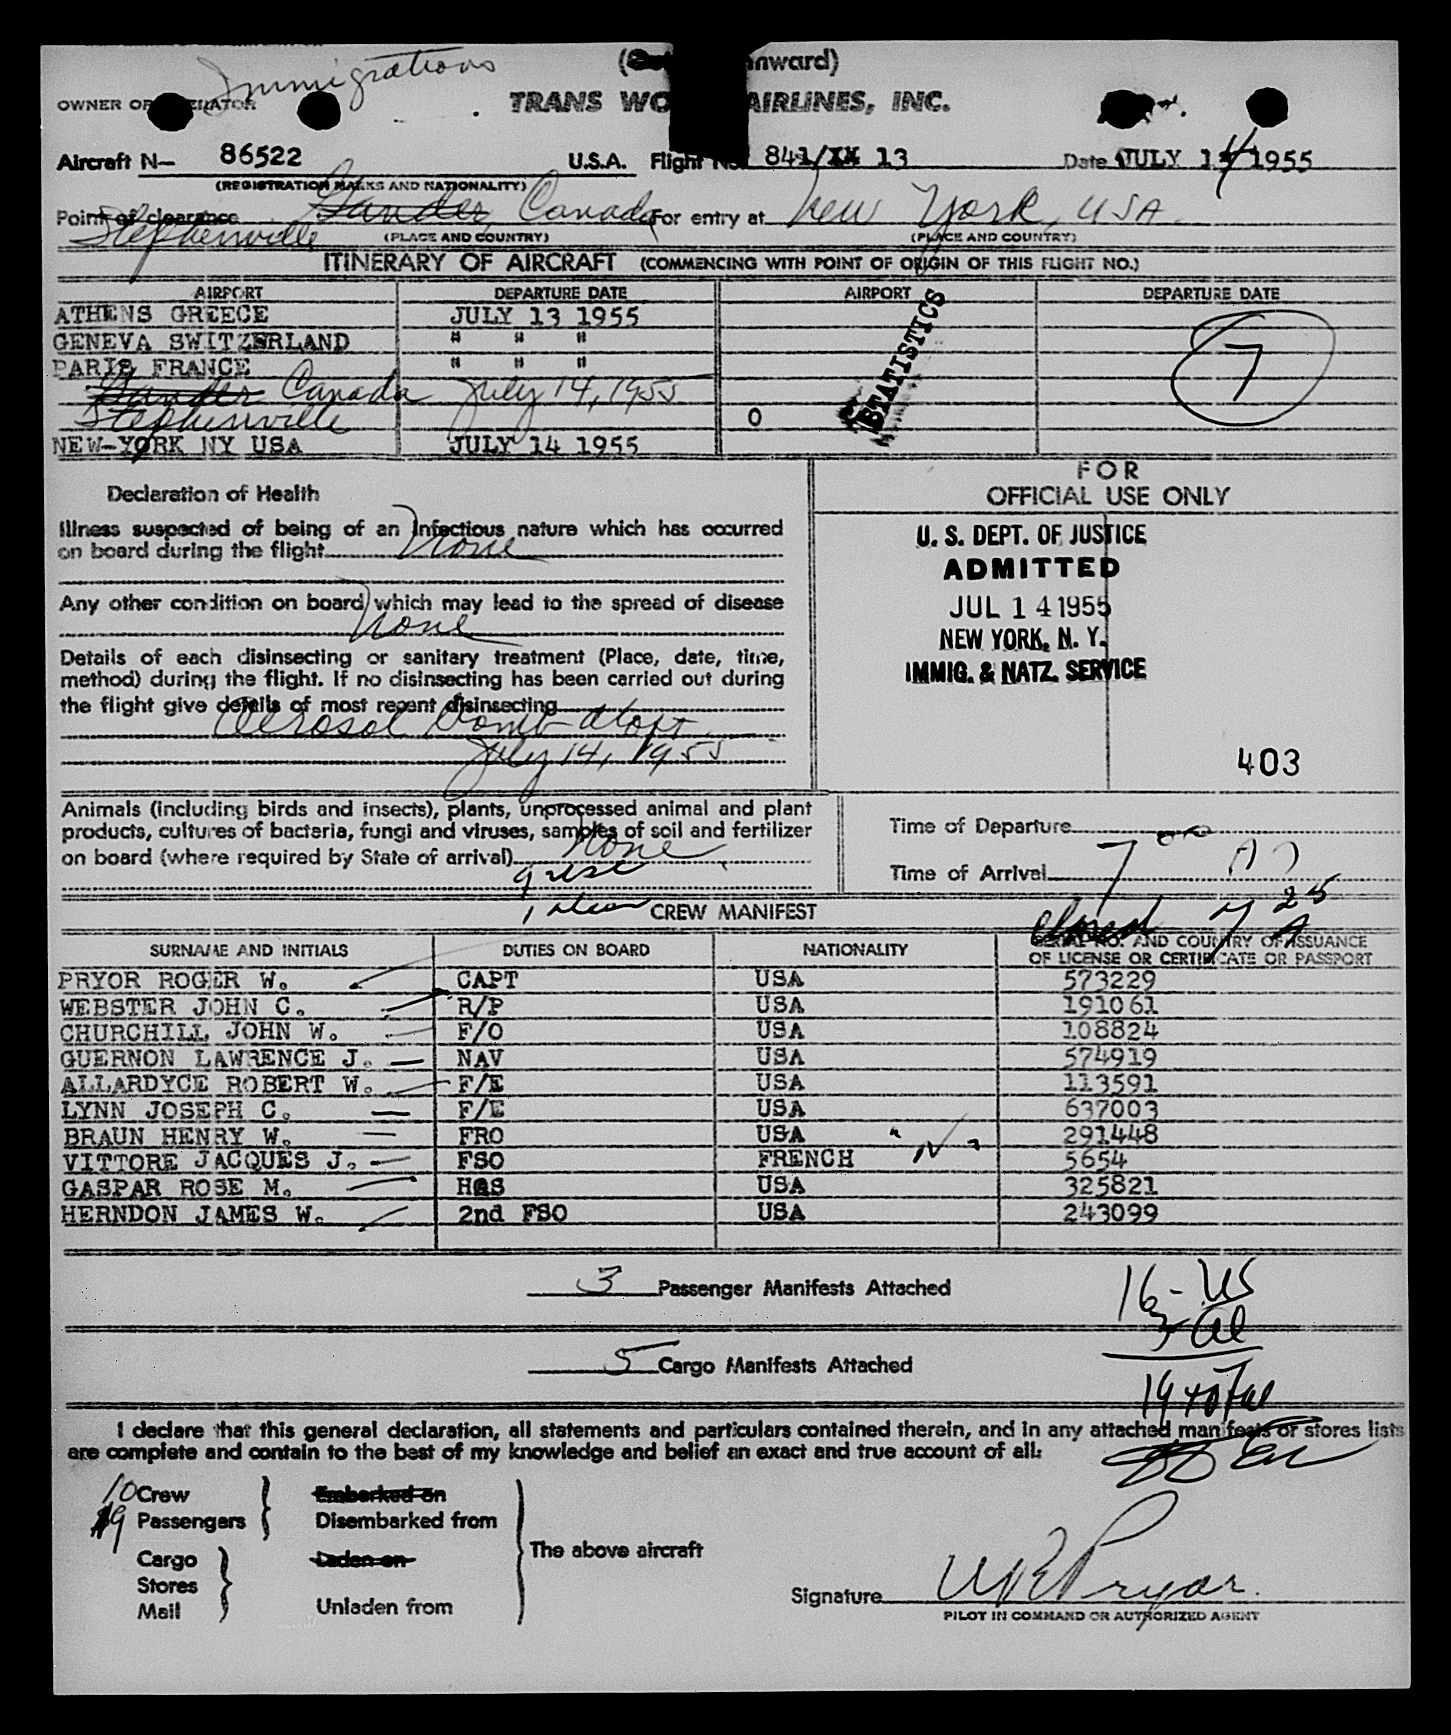 Immigrations
(Inward)
OWNER OR OPERATOR TRANS WORLD AIRLINES, INC.
Aircraft N— 86522 U.S.A. Flight No. 841/XX 13 Date JULY 14 1955
(REGISTRATION MARKS AND NATIONALITY)
Point of clearance Gander, Canada For entry at New York, USA
Stephenville (PLACE AND COUNTRY) (PLACE AND COUNTRY)
ITINERARY OF AIRCRAFT (COMMENCING WITH POINT OF ORIGIN OF THIS FLIGHT NO.)
AIRPORT DEPARTURE DATE AIRPORT DEPARTURE DATE
ATHENS GREECE JULY 13 1955
GENEVA SWITZERLAND " " "
PARIS, FRANCE " " "
STATISTICS
7
Gander Canada July 14, 1955
Stephenville O
NEW-YORK NY USA JULY 14 1955
FOR
OFFICIAL USE ONLY
Declaration of Health
Illness suspected of being of an infectious nature which has occurred
on board during the flight None
Any other condition on board which may lead to the spread of disease
None
Details of each disinsecting or sanitary treatment (Place, date, time,
method) during the flight. If no disinsecting has been carried out during
the flight give details of most recent disinsecting
Aerosol bomb
July 14, 1955
U. S. DEPT. OF JUSTICE
ADMITTED
JUL 14 1955
NEW YORK, N. Y.
IMMIG. & NATZ. SERVICE
403
Animals (including birds and insects), plants, unprocessed animal and plant
products, cultures of bacteria, fungi and viruses, samples of soil and fertilizer
on board (where required by State of arrival) None
Time of Departure
Time of Arrival 7 00 A
9 usc
1 alien
CREW MANIFEST
closed 7 25 A
SURNAME AND INITIALS DUTIES ON BOARD NATIONALITY SERIAL NO. AND COUNTRY OF ISSUANCE
OF LICENSE OR CERTIFICATE OR PASSPORT
PRYOR ROGER W. CAPT USA 573229
WEBSTER JOHN C. R/P USA 191061
CHURCHILL JOHN W. F/O USA 108824
GUERNON LAWRENCE J. NAV USA 574919
ALLARDYCE ROBERT W. F/E USA 113591
LYNN JOSEPH C. F/E USA 637003
BRAUN HENRY W. FRO USA 291448
VITTORE JACQUES J. FSO FRENCH 5654
GASPAR ROSE M. HOS USA 325821
HERNDON JAMES W. 2nd FSO USA 243099
3 Passenger Manifests Attached
16 - US
3 - al
5 Cargo Manifests Attached
19 total
I declare that this general declaration, all statements and particulars contained therein, and in any attached manifests or stores lists
are complete and contain to the best of my knowledge and belief an exact and true account of all:
10 Crew Embarked on
19 Passengers Disembarked from
The above aircraft
Cargo Laden on
Stores
Mail Unladen from
Signature W R Pryor.
PILOT IN COMMAND OR AUTHORIZED AGENT